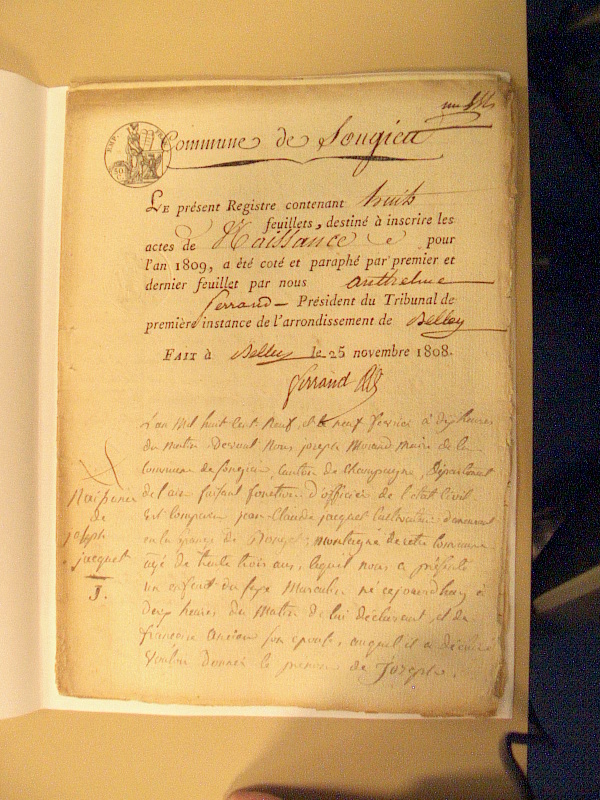 Commune de Songieu
LE présent Registre contenant huit
feuillets, destiné à inscrire les
actes de Naissance pour
l'an 1809, a été coté et paraphé par premier et
dernier feuillet par nous anthelme
ferrand Président du Tribunal de
première instance de l'arrondissement de Belley
FAIT à Belley le 25 novembre 1808.
ferrand
L'an Mil huit Cent Neuf, et le neuf fevrier à dix heures
du matin Devant Nous joseph Morand maire de la
Commune de songieu, Canton de Champagne, Département
de l'ain faisant fonction d'officier de l'etat Civil
Est comparu jean-Claude jacquet Cultivateur demeurant
en la grange de montagne de cette Commune
agé de trente trois ans, lequel nous a présenté
un enfant du sexe Masculin né cejourdhuy à
deux heures du Matin de lui déclarant, et de
francoise ancian son epouse, auquel il a déclaré
vouloir donner le prenom de Joseph.
Naissance
de
joseph
jacquet
1.